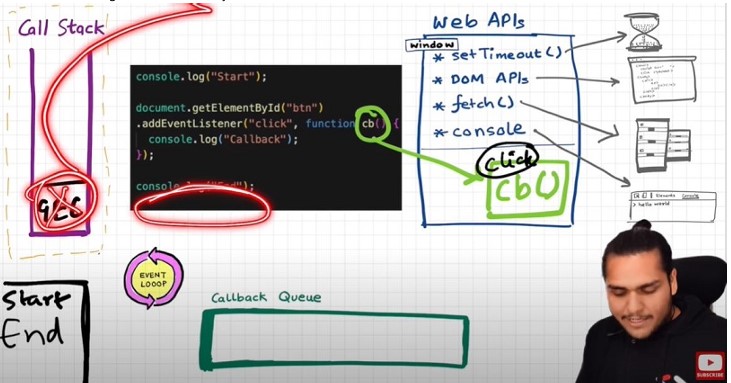 Call Stack
GEC
console.log("Start");
document.getElementById("btn")
.addEventListener("click", function cb() {
console.log("Callback");
});
console.log("End");
Web APIs
window
* setTimeout()
* DOM APIs
* fetch()
* console
click
cb()
> hello world
Start
End
EVENT
LOOOP
Callback Queue
SUBSCRIBE